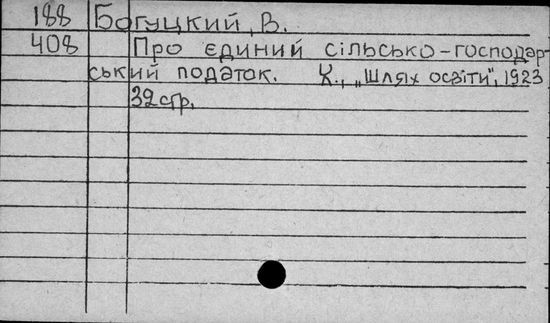 188 Богуцкий, В.
408 Про єдиний сільсько-господар-
ський податок. К., „Шлях освіти", 1923
32 стр.